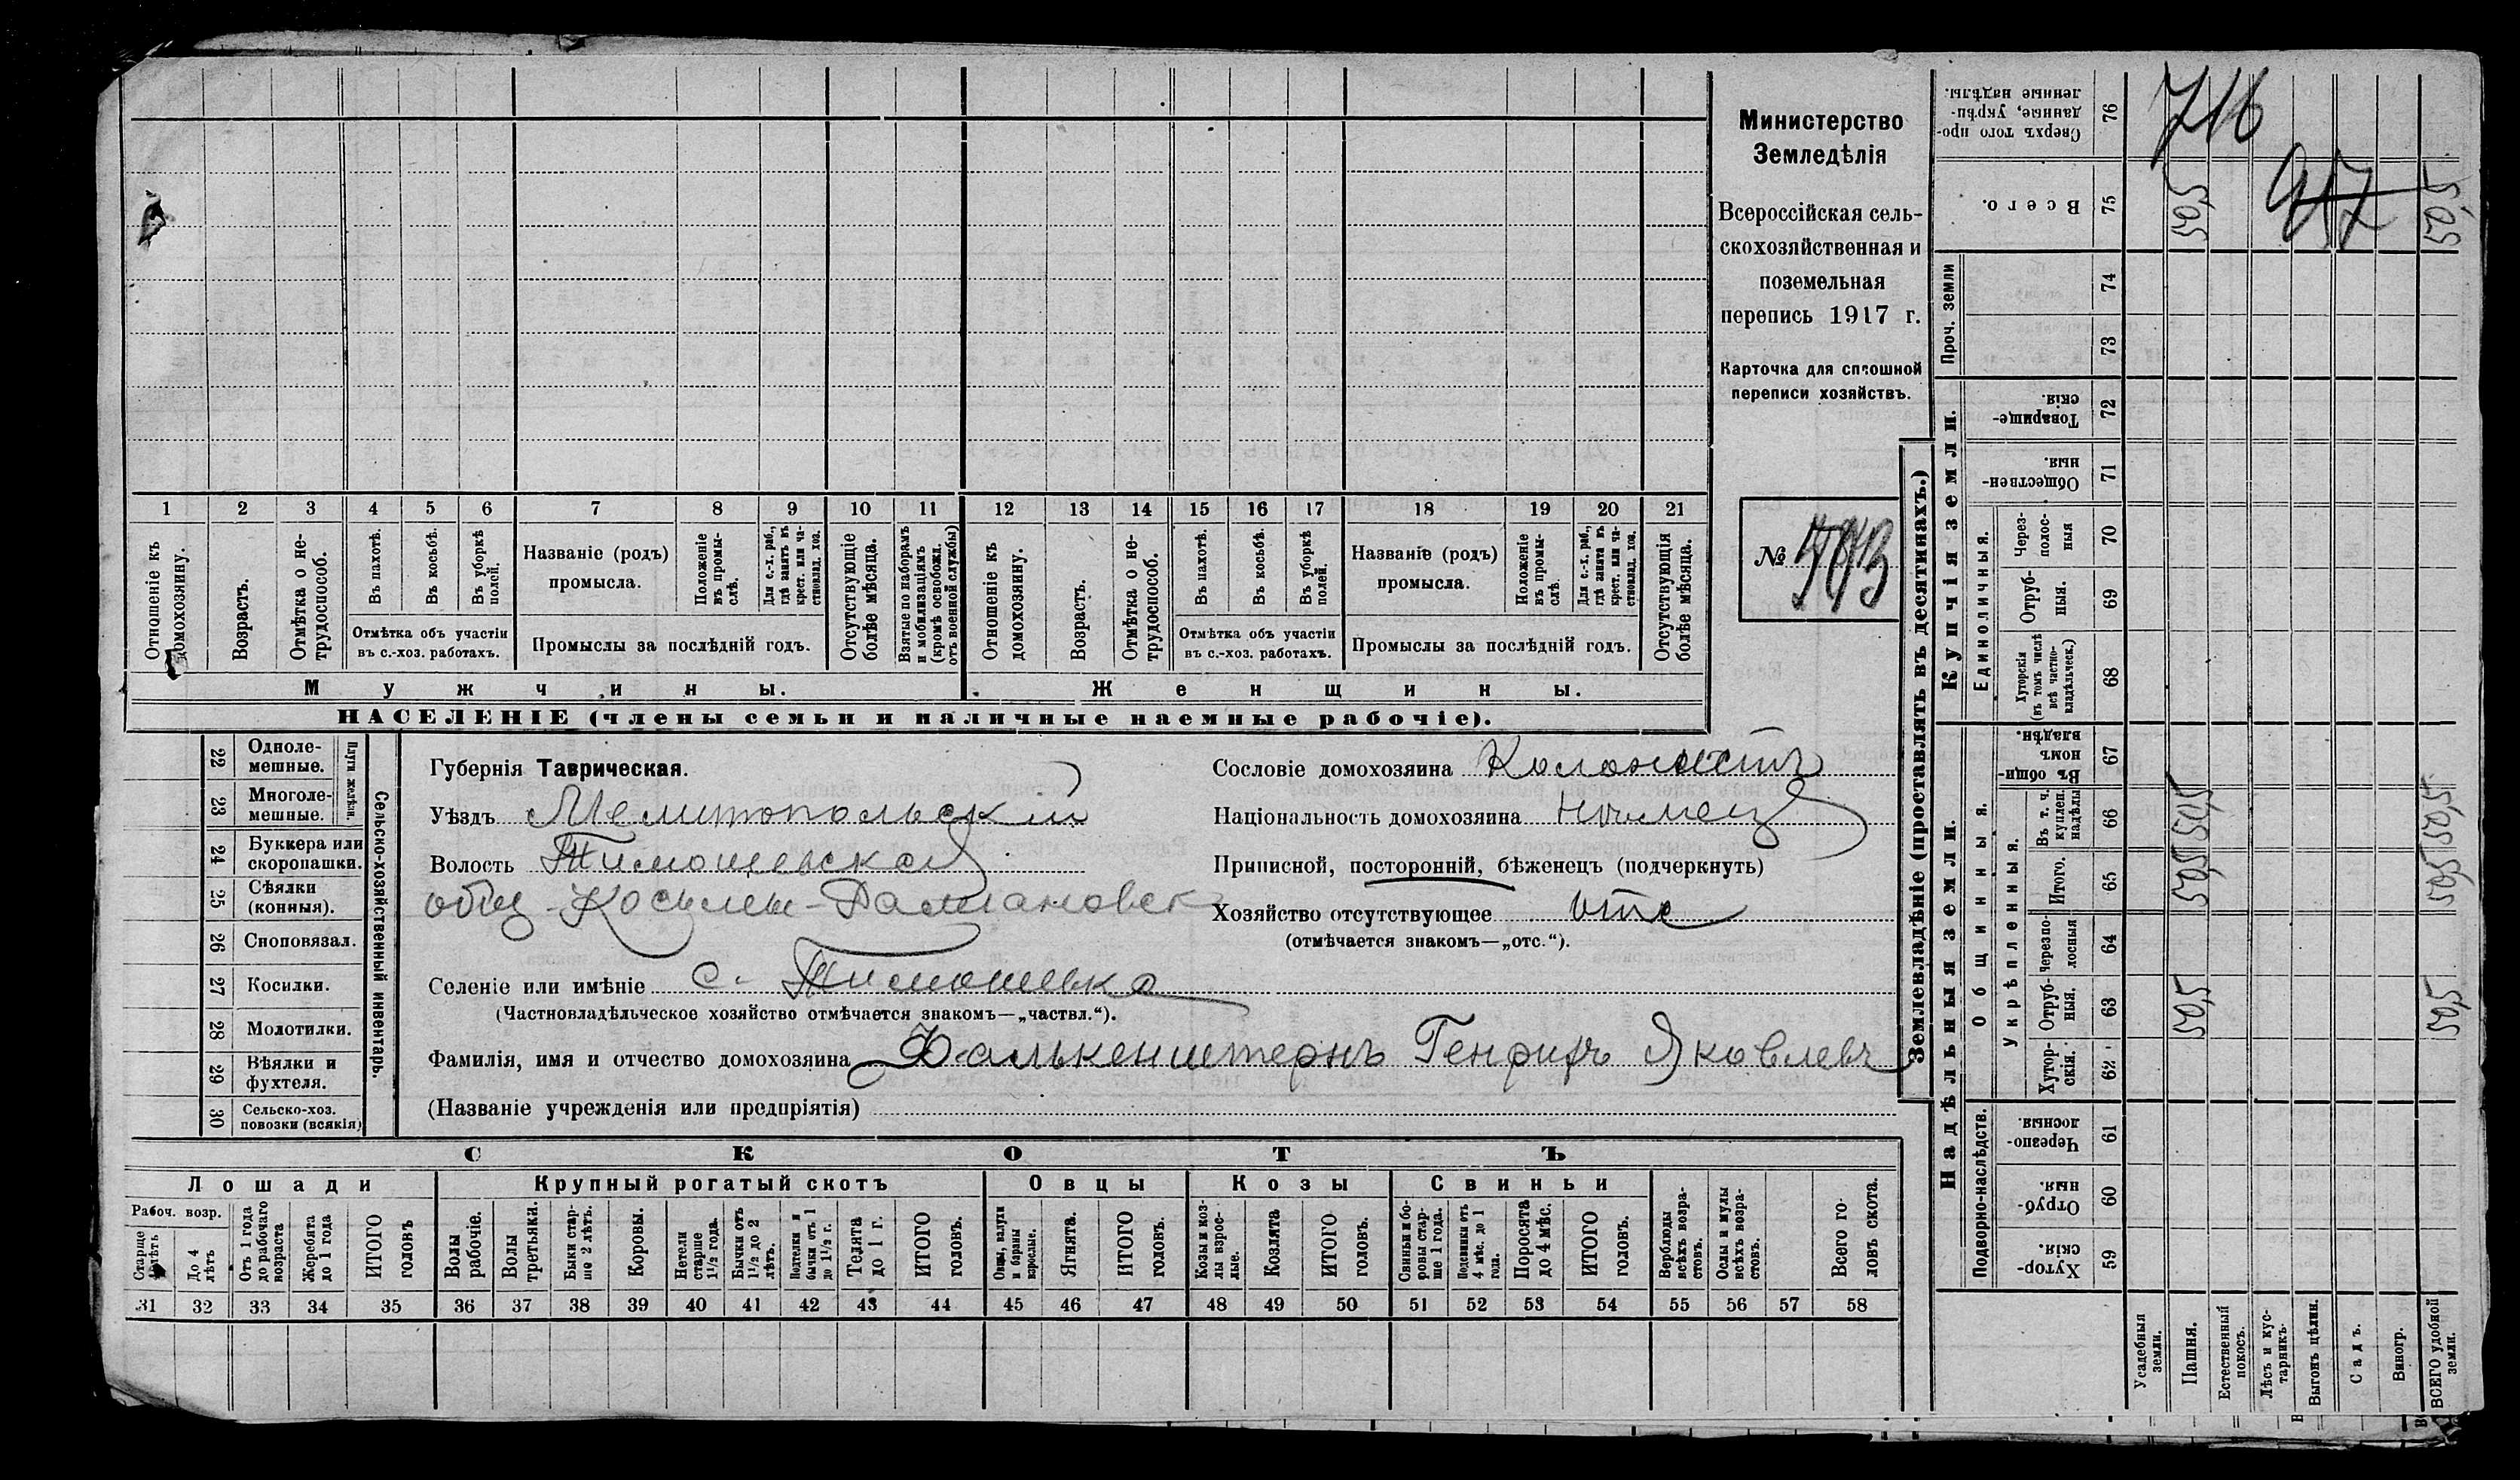 Министерство
Земледѣлія
Всероссійская сель-
скохозяйственная и
поземельная
перепись 1917 г.
Карточка для сплошной
переписи хозяйствъ.
№
1 2 3 4 5 6 7 8 9 10 11 12 13 14 15 16 17 18 19 20 21
Отношеніе къ домохозяину.
Возрастъ.
Отмѣтка о не-трудоспособ.
Въ пахотѣ.
Въ косьбѣ.
Въ уборкѣ полей.
Отмѣтка объ участіи
въ с.-хоз. работахъ.
Названіе (родъ)
промысла.
Положеніе въ промы-слѣ.
Для с.-х. раб., гдѣ занятъ въ крест. или ча-стновлад. хоз.
Промыслы за послѣдній годъ.
Отсутствующіе болѣе мѣсяца.
Взятые по наборамъ и мобилизаціямъ (кромѣ освобожд. отъ военной службы)
Отношеніе къ домохозяину.
Возрастъ.
Отмѣтка о не-трудоспособ.
Въ пахотѣ.
Въ косьбѣ.
Въ уборкѣ полей.
Отмѣтка объ участіи
въ с.-хоз. работахъ.
Названіе (родъ)
промысла.
Положеніе въ промы-слѣ.
Для с.-х. раб., гдѣ занята въ крест. или ча-стновлад. хоз.
Промыслы за послѣдній годъ.
Отсутствующія болѣе мѣсяца.
Мужчины.
Женщины.
НАСЕЛЕНІЕ (члены семьи и наличные наемные рабочіе).
22 Одноле-
мешные.
23 Многоле-
мешные.
Плуги желѣзн.
24 Буккера или
скоропашки.
25 Сѣялки
(конныя).
26 Сноповязал.
27 Косилки.
28 Молотилки.
29 Вѣялки и
фухтеля.
30 Сельско-хоз.
повозки (всякія)
Сельско-хозяйственный инвентарь.
Губернія Таврическая.
Уѣздъ Мелитопольскій
Волость Тимошевская
общ.
Селеніе или имѣніе с. Тимошевка
(Частновладѣльческое хозяйство отмѣчается знакомъ—„частвл.“).
Фамилія, имя и отчество домохозяина Фалькенштернъ Генрихъ Яковлевъ
(Названіе учрежденія или предпріятія)
Сословіе домохозяина Колонистъ
Національность домохозяина нѣмец
Приписной, посторонній, бѣженецъ (подчеркнуть)
Хозяйство отсутствующее отс
(отмѣчается знакомъ—„отс.“).
СКОТЪ
Лошади
Крупный рогатый скотъ
Овцы
Козы
Свиньи
Рабоч. возр.
Старше лѣтъ
До 4 лѣтъ
Отъ 1 года до рабочаго возраста
Жеребята до 1 года
ИТОГО головъ
Волы рабочіе.
Волы третьяки.
Быки стар-ше 2 лѣтъ.
Коровы.
Нетели старше 1½ года.
Бычки отъ 1½ до 2 лѣтъ.
Подтелки и бычки отъ 1 до 1½ г.
Телята до 1 г.
ИТОГО головъ.
Овцы, валухи и бараны взрослые.
Ягнята.
ИТОГО головъ.
Козы и коз-лы взрос-лые.
Козлята
ИТОГО головъ.
Свиньи и бо-ровы стар-ше 1 года.
Подсвинки отъ 4 мѣс. до 1 года.
Поросята до 4 мѣс.
ИТОГО головъ.
Верблюды всѣхъ возра-стовъ.
Ослы и мулы всѣхъ возра-стовъ.
Всего го-ловъ скота.
31 32 33 34 35 36 37 38 39 40 41 42 43 44 45 46 47 48 49 50 51 52 53 54 55 56 57 58
Землевладѣніе (проставлять въ десятинахъ.)
Надѣльныя земли.
Купчія земли.
Проч. земли
Подворно-наслѣдств.
Общинныя.
Укрѣпленныя.
Единоличныя.
76 Сверхъ того про-данные, укрѣп-ленные надѣлы.
716
75 Всего.
50,5
917
50,5
74
73
72 Товарище-скія.
71 Обществен-ныя.
70 Через-полос-ныя
69 Отруб-ныя.
68 Хуторскія (въ томъ числѣ всѣ частно-владѣльческ.)
67 Въ общи-номъ владѣн.
66 Въ т. ч. куплен. надѣлы
50,5
50,5
65 Итого.
50,5
50,5
64 Черезпо-лосныя
63 Отруб-ныя.
50,5
50,5
62 Хутор-скія.
61 Черезпо-лосныя
60 Отруб-ныя.
59 Хутор-скія.
Усадебныя земли.
Пашня.
Естественный покосъ.
Лѣсъ и кус-тарникъ.
Выгонъ цѣлин.
Садъ.
Виногр.
ВСЕГО удобной земли.